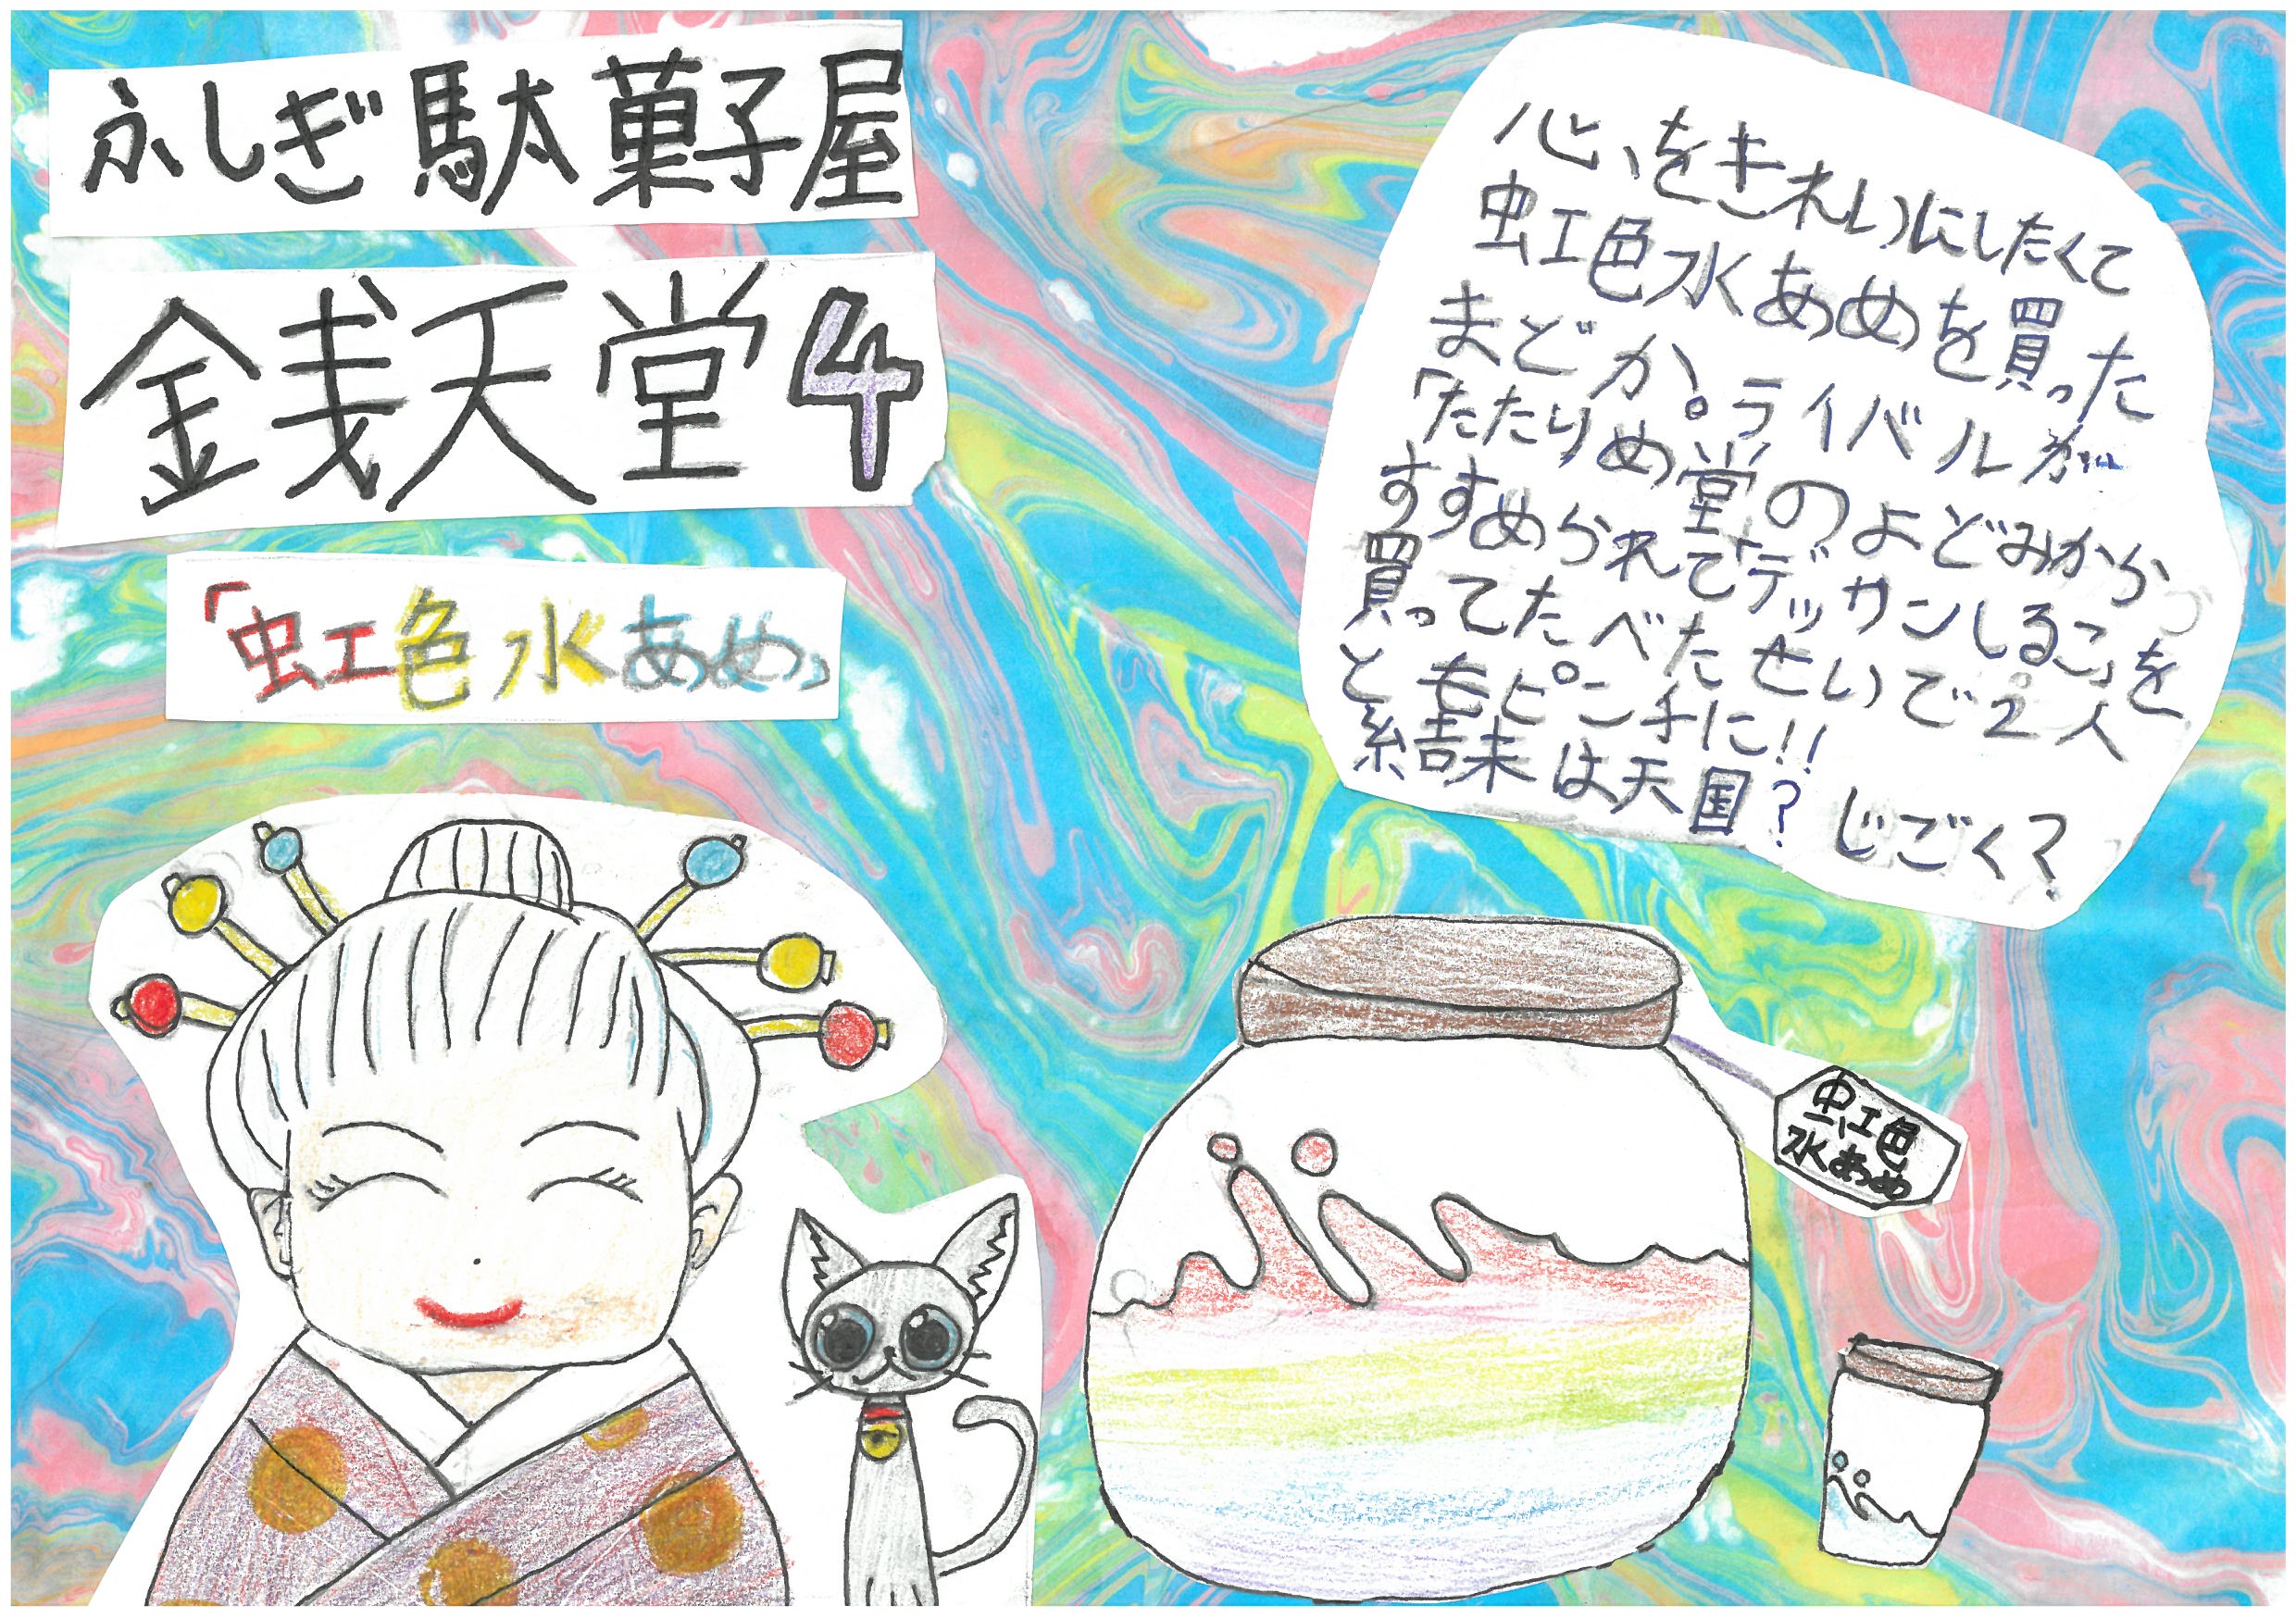 ふしぎ駄菓子屋
銭天堂4
「虹色水あめ」
心をきれいにしたくて
虹色水あめを買った
まどか。ライバルが
「たたりめ堂」のよどみから
すすめられて「デッサンしるこ」を
買ってたべたせいで2人
ともピンチに!!
結末は天国?じごく?
虹色
水あめ